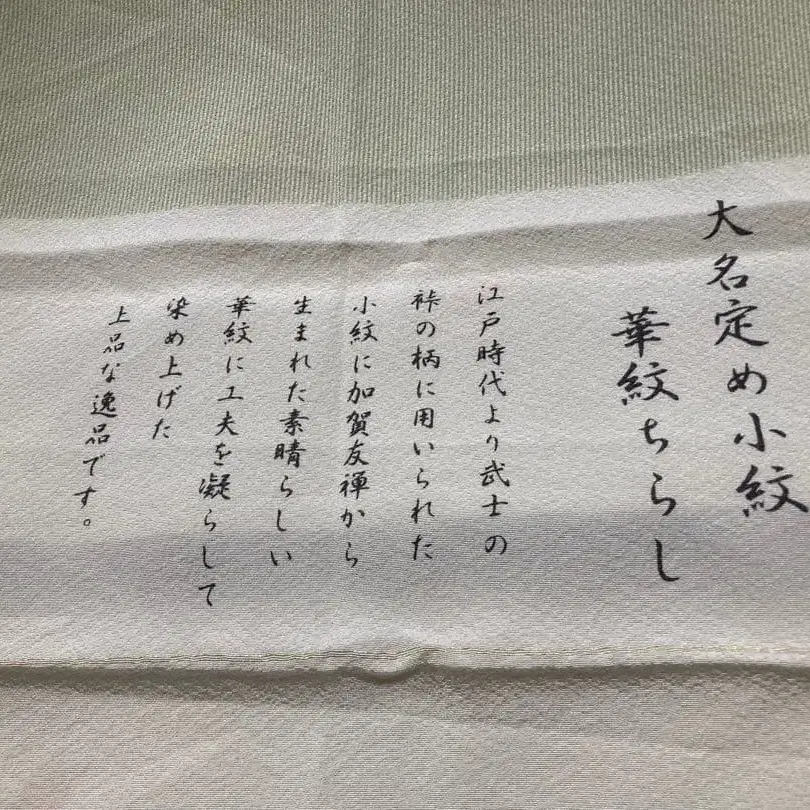 大名定め小紋
華紋ちらし
江戸時代より武士の
裃の柄に用いられた
小紋に加賀友禅から
生まれた素晴らしい
華紋に工夫を凝らして
染め上げた
上品な逸品です。